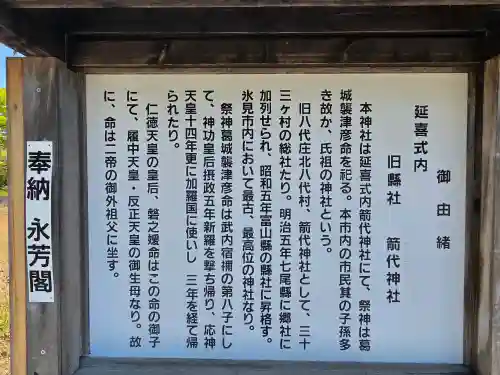 御由緒
延喜式内
旧縣社　箭代神社
本神社は延喜式内箭代神社にて、祭神は葛
城襲津彦命を祀る。本市内の市民其の子孫多
き故か、氏祖の神社という。
旧八代庄北八代村、箭代神社として、三十
三ヶ村の総社たり。明治五年七尾縣に郷社に
加列せられ、昭和五年富山縣の縣社に昇格す。
氷見市内において最古、最高位の神社なり。
祭神葛城襲津彦命は武内宿禰の第八子にし
て、神功皇后摂政五年新羅を撃ち帰り、応神
天皇十四年更に加羅国に使いし　三年を経て帰
られたり。
仁徳天皇の皇后、磐之媛命はこの命の御子
にて、履中天皇・反正天皇の御生母なり。故
に、命は二帝の御外祖父に坐す。
奉納　永芳閣